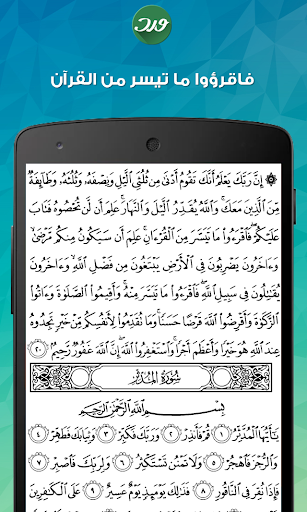 ورد
فاقرؤوا ما تيسر من القرآن
۞ إِنَّ رَبَّكَ يَعْلَمُ أَنَّكَ تَقُومُ أَدْنَىٰ مِن ثُلُثَيِ ٱلَّيْلِ وَنِصْفَهُۥ وَثُلُثَهُۥ وَطَآئِفَةٌ
مِّنَ ٱلَّذِينَ مَعَكَ ۚ وَٱللَّهُ يُقَدِّرُ ٱلَّيْلَ وَٱلنَّهَارَ ۚ عَلِمَ أَن لَّن تُحْصُوهُ فَتَابَ
عَلَيْكُمْ ۖ فَٱقْرَءُوا۟ مَا تَيَسَّرَ مِنَ ٱلْقُرْءَانِ ۚ عَلِمَ أَن سَيَكُونُ مِنكُم مَّرْضَىٰ ۙ
وَءَاخَرُونَ يَضْرِبُونَ فِى ٱلْأَرْضِ يَبْتَغُونَ مِن فَضْلِ ٱللَّهِ ۙ وَءَاخَرُونَ
يُقَٰتِلُونَ فِى سَبِيلِ ٱللَّهِ ۖ فَٱقْرَءُوا۟ مَا تَيَسَّرَ مِنْهُ ۚ وَأَقِيمُوا۟ ٱلصَّلَوٰةَ وَءَاتُوا۟
ٱلزَّكَوٰةَ وَأَقْرِضُوا۟ ٱللَّهَ قَرْضًا حَسَنًا ۚ وَمَا تُقَدِّمُوا۟ لِأَنفُسِكُم مِّنْ خَيْرٍ تَجِدُوهُ
عِندَ ٱللَّهِ هُوَ خَيْرًا وَأَعْظَمَ أَجْرًا ۚ وَٱسْتَغْفِرُوا۟ ٱللَّهَ ۖ إِنَّ ٱللَّهَ غَفُورٌ رَّحِيمٌۢ ٢٠
سُورَةُ المُدَّثِّرِ
بِسْمِ ٱللَّهِ ٱلرَّحْمَٰنِ ٱلرَّحِيمِ
يَٰٓأَيُّهَا ٱلْمُدَّثِّرُ ١ قُمْ فَأَنذِرْ ٢ وَرَبَّكَ فَكَبِّرْ ٣ وَثِيَابَكَ فَطَهِّرْ ٤
وَٱلرُّجْزَ فَٱهْجُرْ ٥ وَلَا تَمْنُن تَسْتَكْثِرُ ٦ وَلِرَبِّكَ فَٱصْبِرْ ٧
فَإِذَا نُقِرَ فِى ٱلنَّاقُورِ ٨ فَذَٰلِكَ يَوْمَئِذٍ يَوْمٌ عَسِيرٌ ٩ عَلَى ٱلْكَٰفِرِينَ